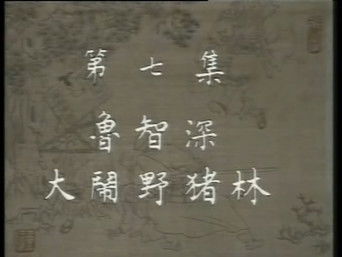 第七集
魯智深
大鬧野猪林